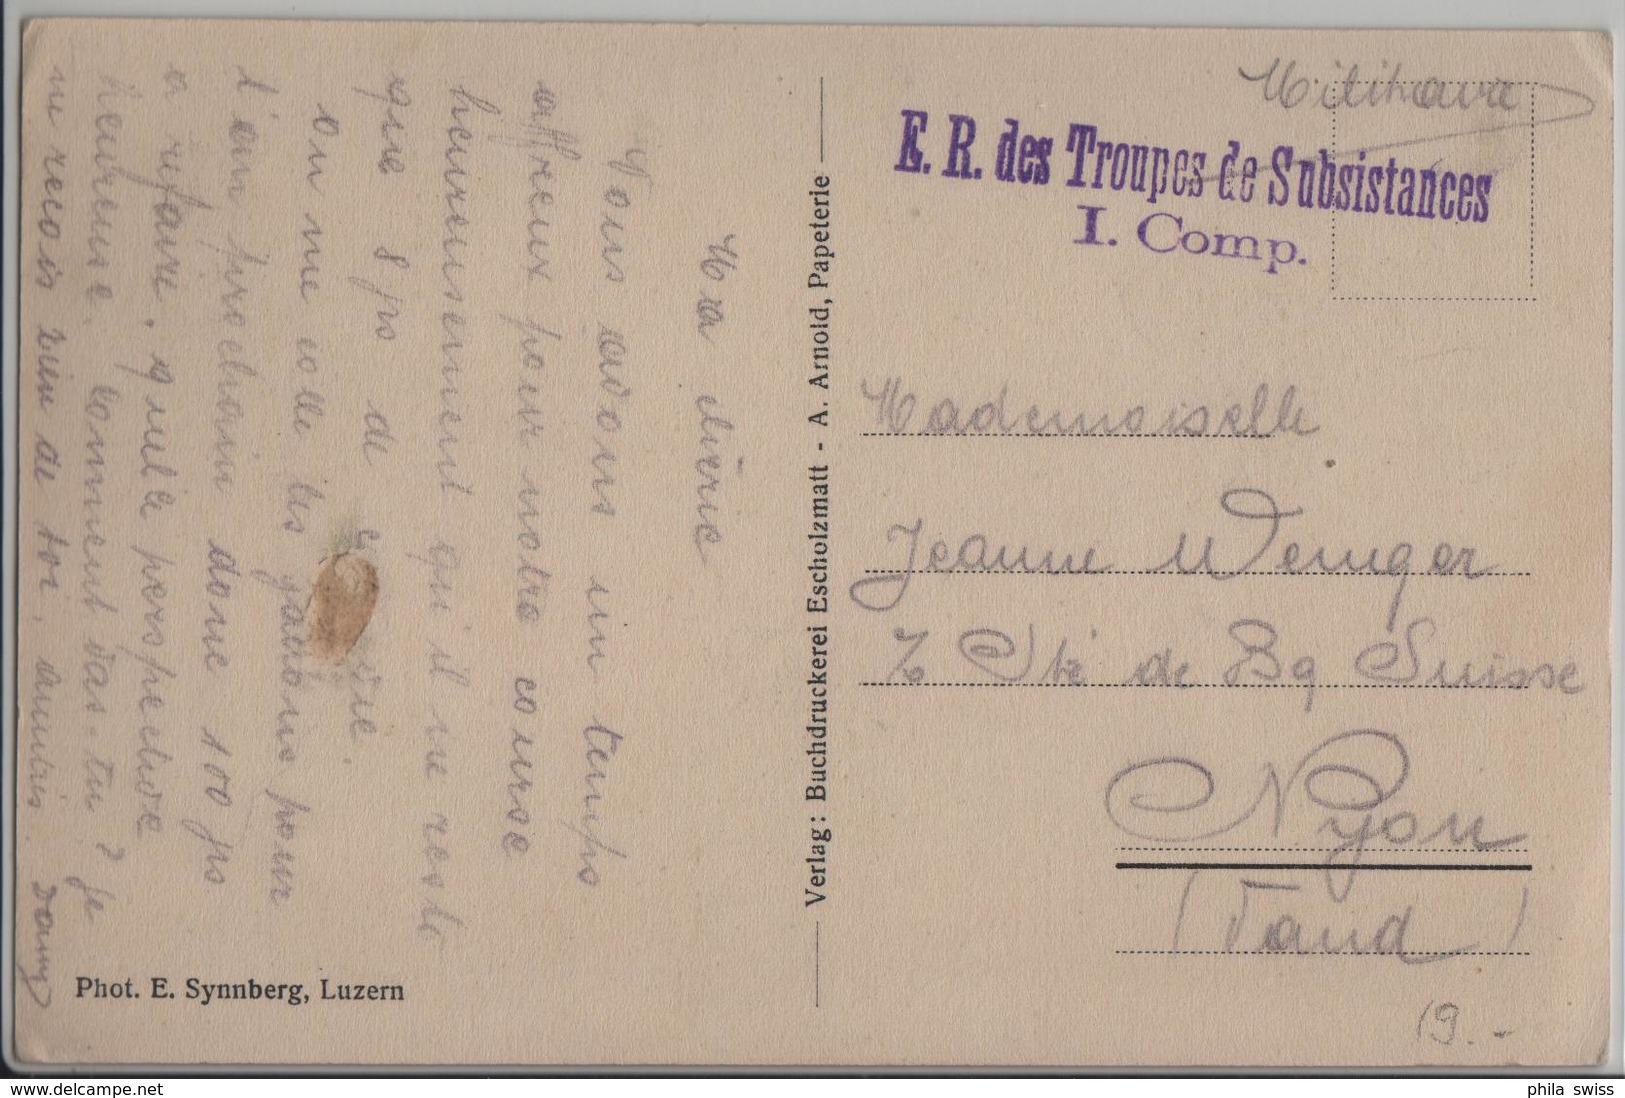 Ma chérie
Nous avons un temps
affreux pour notre course
heureusement qu'il ne reste
que 8 jrs de
on me colle les galons pour
l'an prochain donc 100 jrs
a refaire, quelle perspective
heureuse. Comment vas-tu? je
ne recois rien de toi, amitiés. Dany
Phot. E. Synnberg, Luzern
Verlag: Buchdruckerei Escholzmatt - A. Arnold, Papeterie
Militaire
E. R. des Troupes de Subsistances
I. Comp.
Mademoiselle
Jeanne Wenger
Sté de Bq Suisse
Nyon
(Vaud)
19.-
phila swiss
delcampe.net